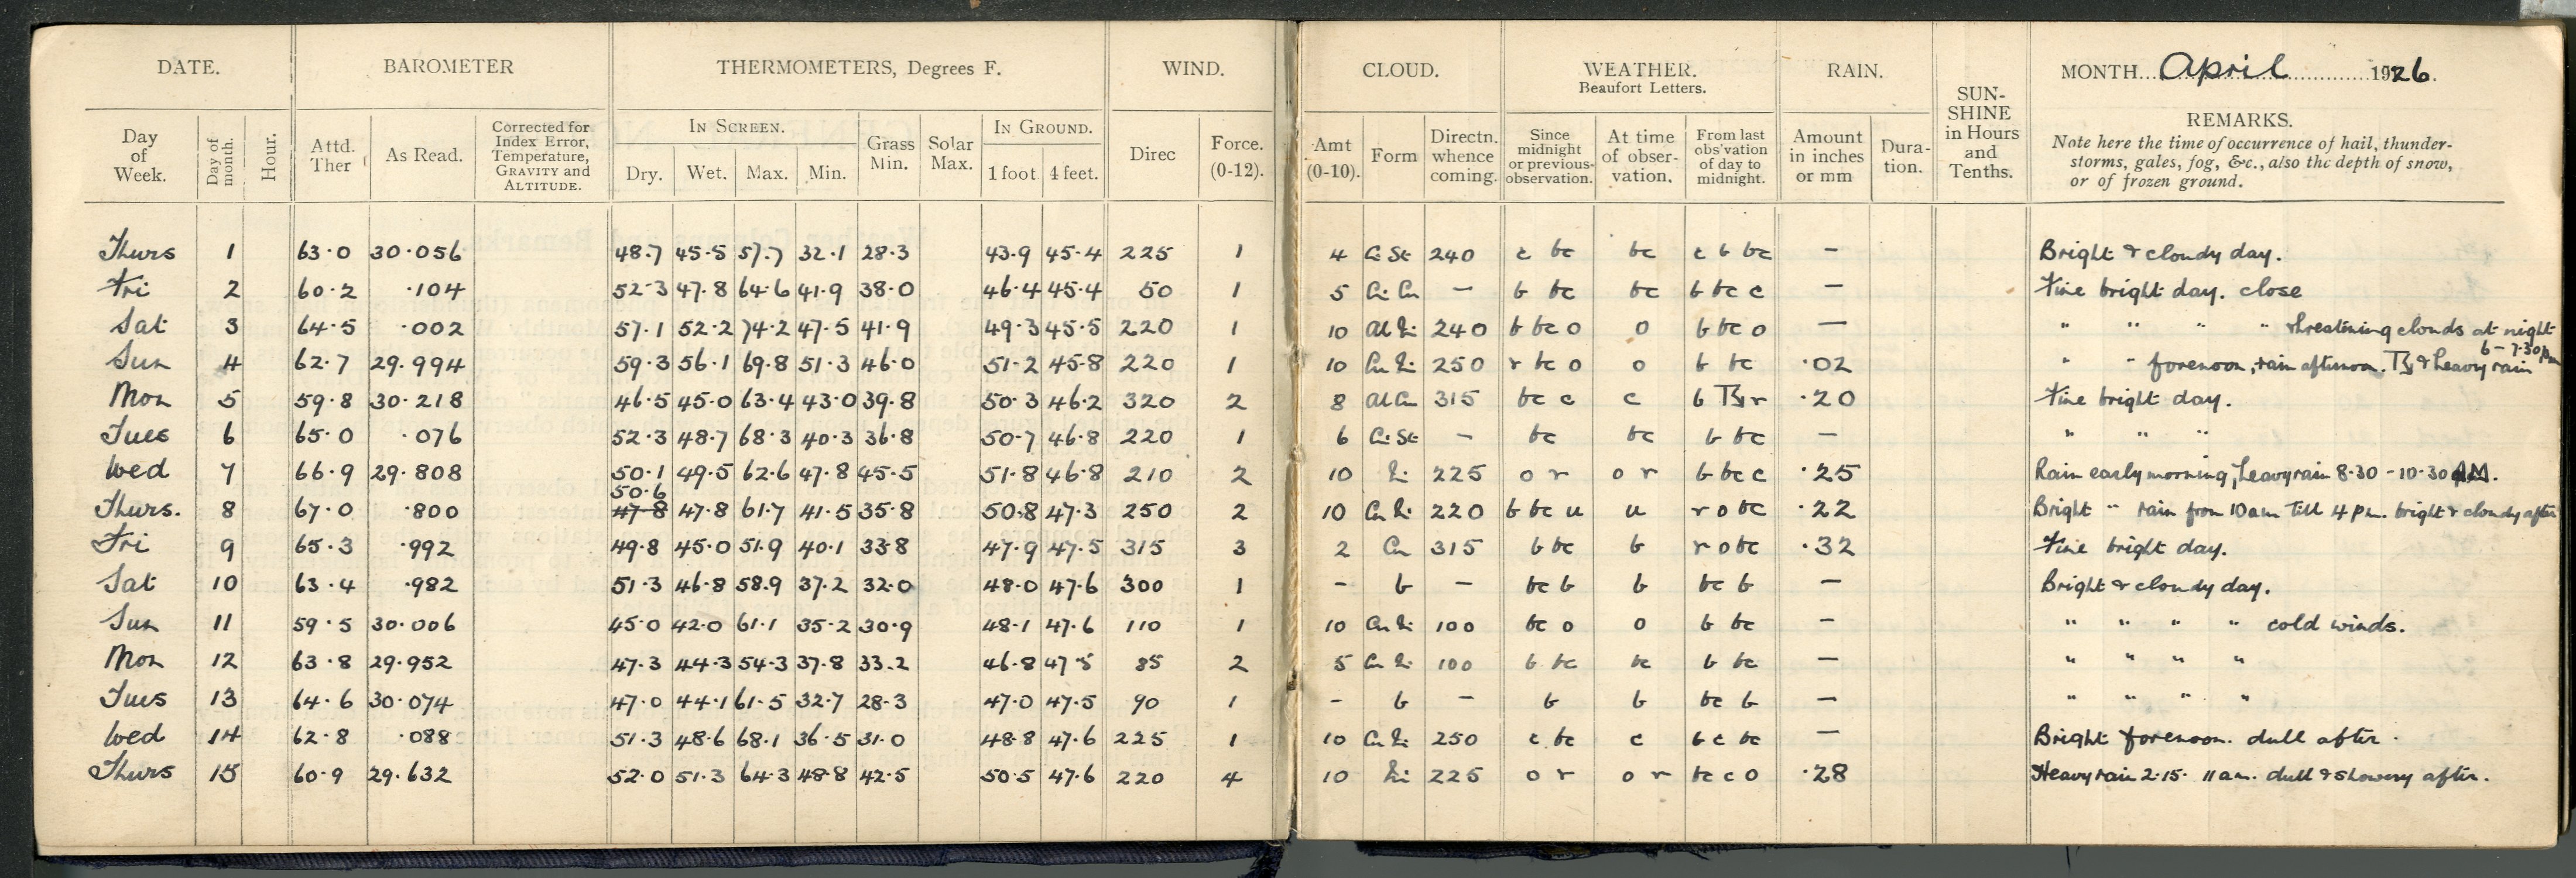 DATE. BAROMETER THERMOMETERS, Degrees F. WIND. CLOUD. WEATHER. Beaufort Letters. RAIN. SUN-SHINE in Hours and Tenths. MONTH April 1926.
REMARKS.
Note here the time of occurrence of hail, thunder-
storms, gales, fog, &c., also the depth of snow,
or of frozen ground.
IN SCREEN. IN GROUND.
Day of Week. Day of month. Hour. Attd. Ther As Read. Corrected for Index Error, Temperature, GRAVITY and ALTITUDE. Dry. Wet. Max. Min. Grass Min. Solar Max. 1 foot 4 feet. Direc Force. (0-12). Amt (0-10). Form Directn. whence coming. Since midnight or previous observation. At time of obser-vation. From last obs'vation of day to midnight. Amount in inches or mm Dura-tion.
Thurs 1 63.0 30.056 48.7 45.5 57.7 32.1 28.3 43.9 45.4 225 1 4 Ci St 240 c bc bc c b bc — Bright & cloudy day.
Fri 2 60.2 .104 52.3 47.8 64.6 41.9 38.0 46.4 45.4 50 1 5 Ci Cu — b bc bc b bc c — Fine bright day. close
Sat 3 64.5 .002 57.1 52.2 74.2 47.5 41.9 49.3 45.5 220 1 10 Al 240 b bc o o b bc o — " " " " threatining clouds at night
Sun 4 62.7 29.994 59.3 56.1 69.8 51.3 46.0 51.2 45.8 220 1 10 Cu 250 r bc o o b bc .02 " " forenoon, rain afternoon. & heavy rain 6 - 7.30 pm
Mon 5 59.8 30.218 46.5 45.0 63.4 43.0 39.8 50.3 46.2 320 2 8 Al Cu 315 bc c c b r .20 Fine bright day.
Tues 6 65.0 .076 52.3 48.7 68.3 40.3 36.8 50.7 46.8 220 1 6 Ci St — bc bc b bc — " " "
Wed 7 66.9 29.808 50.1 49.5 62.6 47.8 45.5 51.8 46.8 210 2 10 225 o r o r b bc c .25 Rain early morning, heavy rain 8.30 - 10.30 AM.
50.6
Thurs. 8 67.0 .800 47.8 47.8 61.7 41.5 35.8 50.8 47.3 250 2 10 Cu 220 b bc u u r o bc .22 Bright " rain from 10 am till 4 pm. bright & cloudy after
Fri 9 65.3 .992 49.8 45.0 51.9 40.1 33.8 47.9 47.5 315 3 2 Cu 315 b bc b r o bc .32 Fine bright day.
Sat 10 63.4 .982 51.3 46.8 58.9 37.2 32.0 48.0 47.6 300 1 — b — bc b b bc b — Bright & cloudy day.
Sun 11 59.5 30.006 45.0 42.0 61.1 35.2 30.9 48.1 47.6 110 1 10 Cu 100 bc o o b bc — " " " " cold winds.
Mon 12 63.8 29.952 47.3 44.3 54.3 37.8 33.2 46.8 47.5 85 2 5 Cu 100 b bc bc b bc — " " " "
Tues 13 64.6 30.074 47.0 44.1 61.5 32.7 28.3 47.0 47.5 90 1 — b — b b bc b — " " " "
Wed 14 62.8 .088 51.3 48.6 68.1 36.5 31.0 48.8 47.6 225 1 10 Cu 250 c bc c b c bc — Bright forenoon. dull after.
Thurs 15 60.9 29.632 52.0 51.3 64.3 48.8 42.5 50.5 47.6 220 4 10 225 o r o r bc c o .28 Heavy rain 2.15. 11 am. dull & showery after.